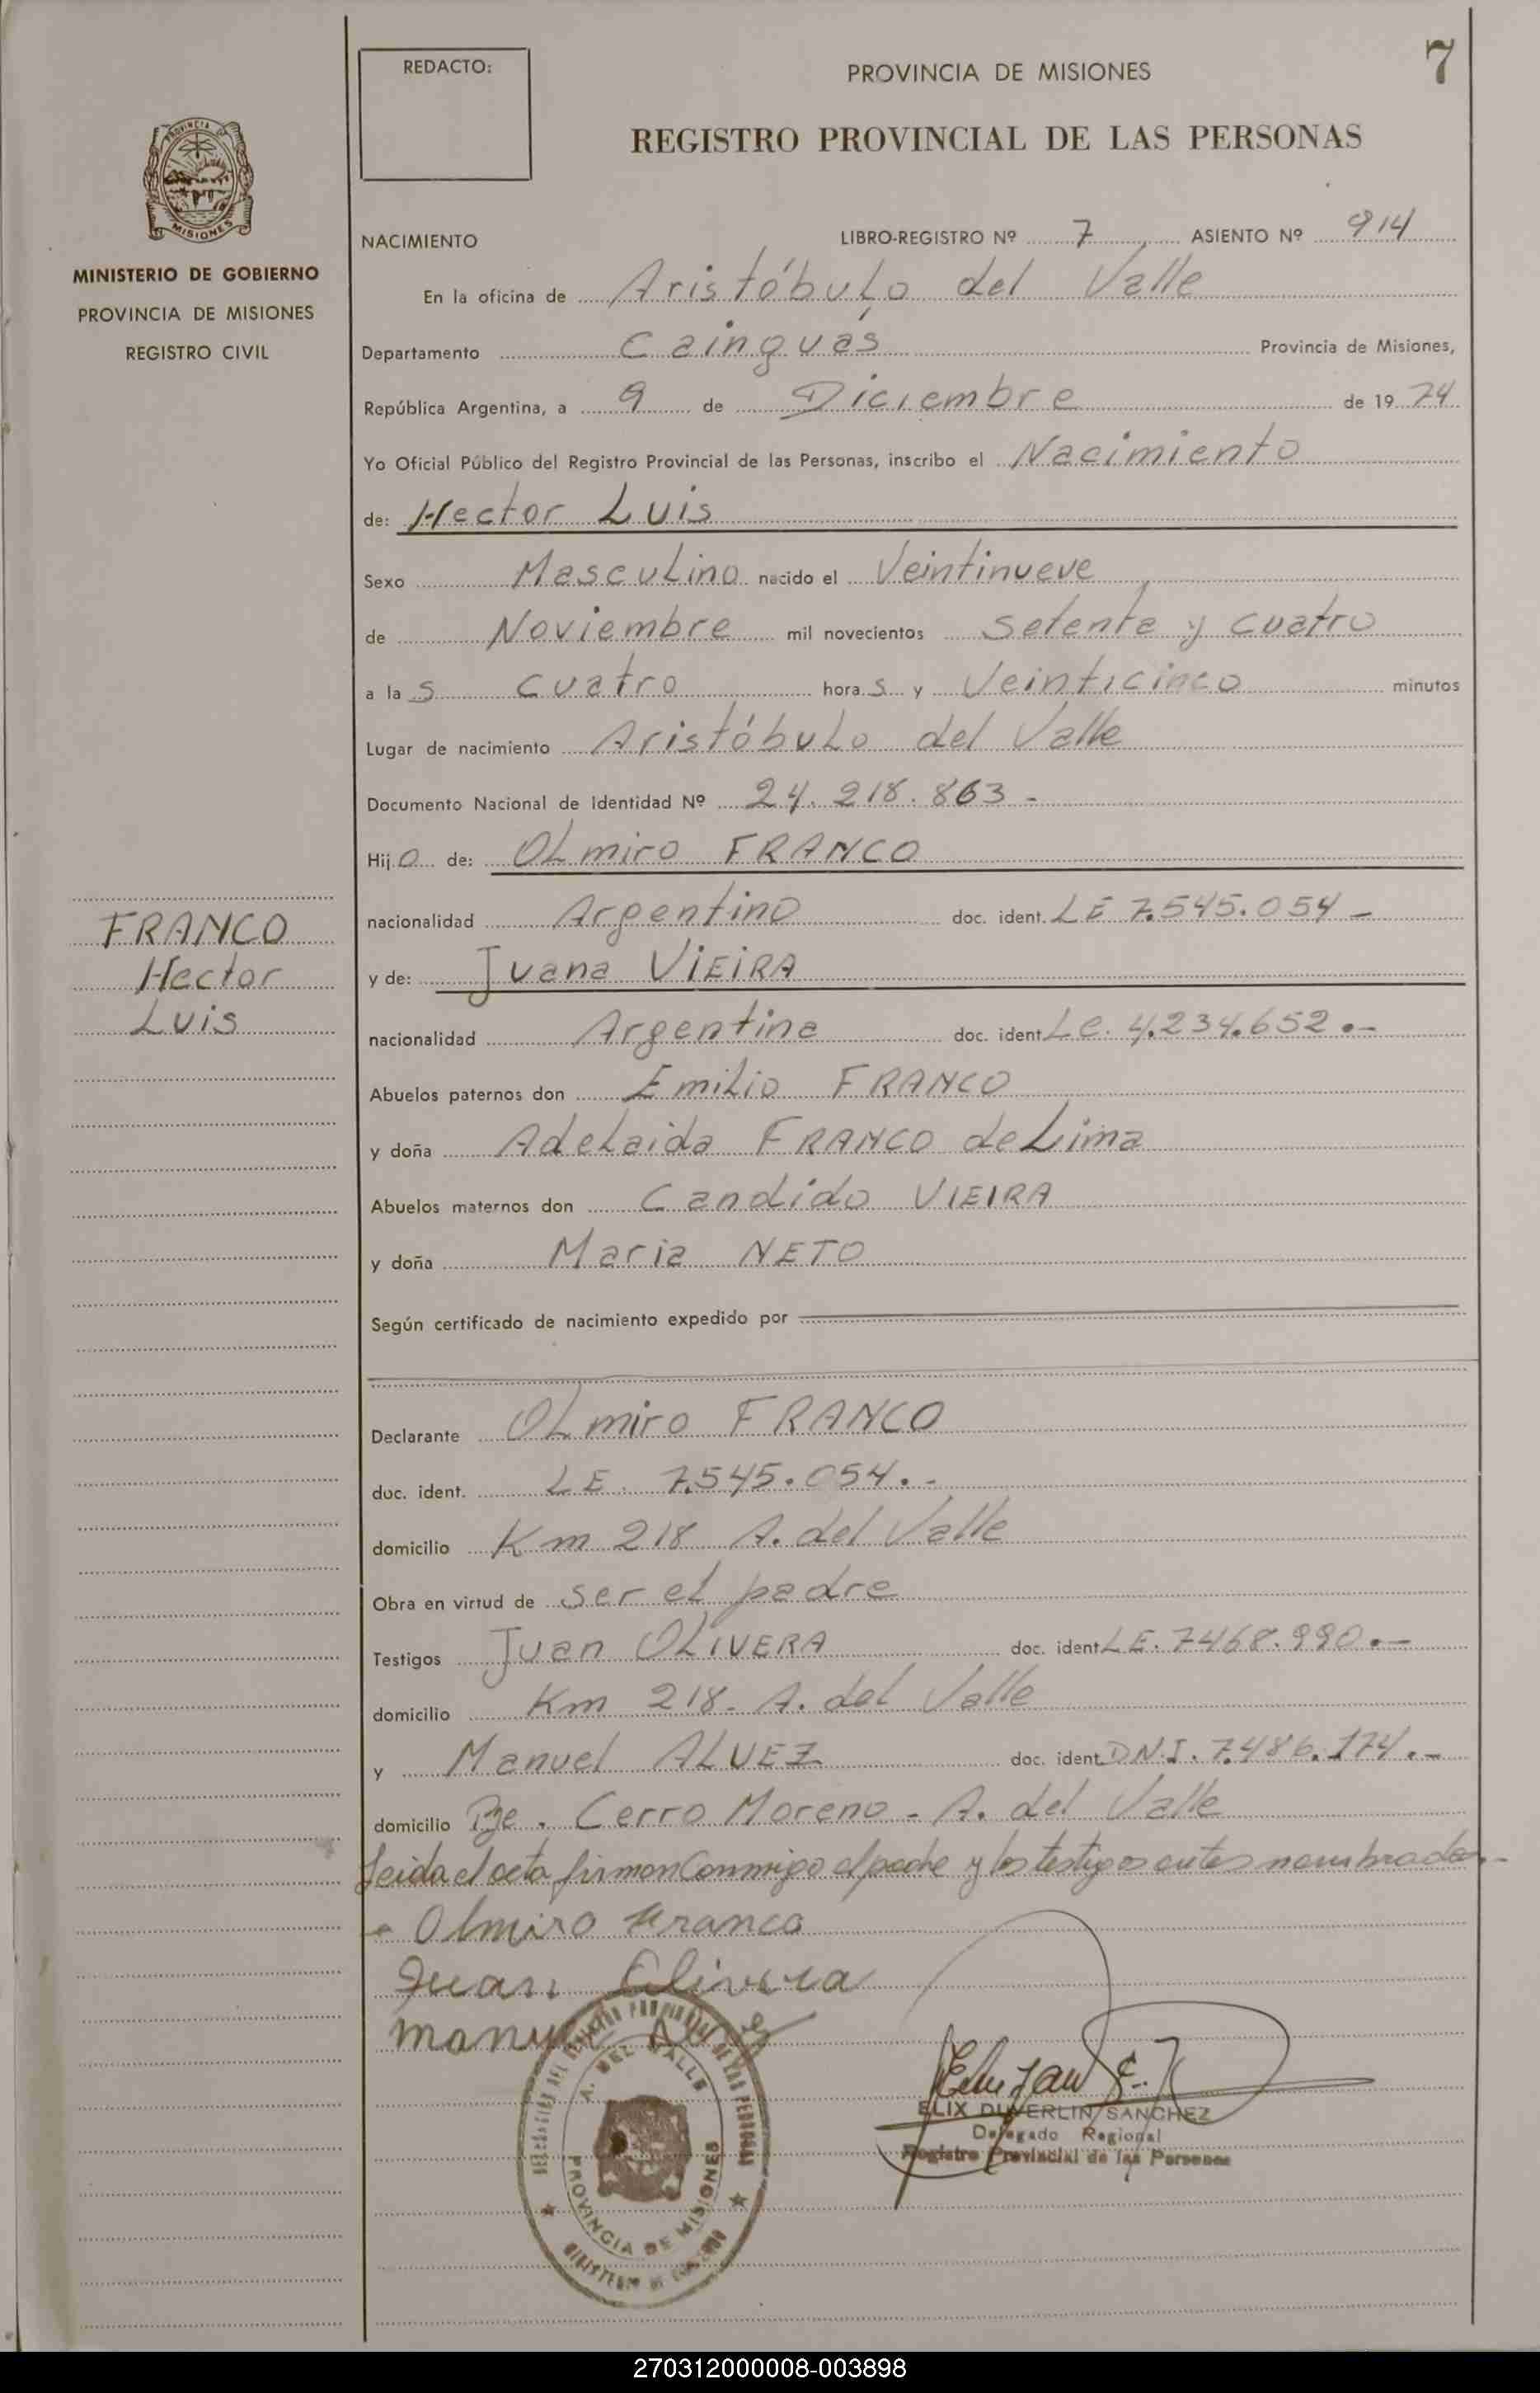 REDACTO:
PROVINCIA DE MISIONES
7
REGISTRO PROVINCIAL DE LAS PERSONAS
PROVINCIA
MISIONES
MINISTERIO DE GOBIERNO
PROVINCIA DE MISIONES
REGISTRO CIVIL
NACIMIENTO LIBRO-REGISTRO Nº 7 ASIENTO Nº 914
En la oficina de Aristóbulo del Valle
Departamento Cainguás Provincia de Misiones,
República Argentina, a 9 de Diciembre de 1974
Yo Oficial Público del Registro Provincial de las Personas, inscribo el Nacimiento
de: Hector Luis
Sexo Masculino nacido el Veintinueve
de Noviembre mil novecientos setenta y cuatro
a las cuatro horas y Veinticinco minutos
Lugar de nacimiento Aristóbulo del Valle
Documento Nacional de Identidad Nº 24.218.863-
Hijo de: Olmiro FRANCO
nacionalidad Argentino doc. ident. LE 7.545.054-
y de: Juana VIEIRA
nacionalidad Argentina doc. ident Lc. 4.234.652.-
Abuelos paternos don Emilio FRANCO
y doña Adelaida FRANCO de Lima
Abuelos maternos don Candido VIEIRA
y doña Maria NETO
Según certificado de nacimiento expedido por
Declarante Olmiro FRANCO
doc. ident. LE. 7.545.054.-
domicilio Km 218 A. del Valle
Obra en virtud de ser el padre
Testigos Juan OLIVERA doc. ident LE. 7468.990.-
domicilio Km 218- A. del Valle
y Manuel ALVEZ doc. ident D.N.I. 7.486.174.-
domicilio Pje. Cerro Moreno - A. del Valle
Leida el acta firman conmigo el padre y los testigos antes nombrados.-
Olmiro Franco
Juan Olivera
Manuel
FRANCO
Hector
Luis
A. DEL VALLE
PROVINCIA DE MISIONES
ELIX DUVERLIN SANCHEZ
Delegado Regional
Registro Provincial de las Personas
270312000008-003898